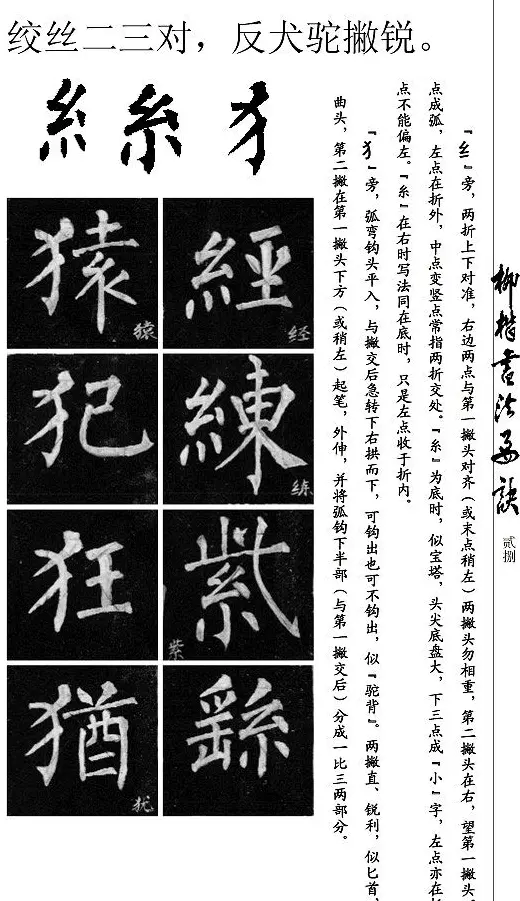 绞丝二三对，反犬驼撇锐。
糹 糸 犭
猿 猿 經 经
犯 練 练
狂 紫 紫
猶 犹 繇
『纟』旁，两折上下对准，右边两点与第一撇头对齐（或末点稍左）两撇头勿相重，第二撇头在右，望第一撇头
点成弧，左点在折外，中点变竖点常指两折交处。『糸』为底时，似宝塔，头尖底盘大，下三点成『小』字，左点亦在
点不能偏左。『糸』在右时写法同在底时，只是左点收于折内。
『犭』旁，弧弯钩头平入，与撇交后急转下右拱而下，可钩出也可不钩出，似『驼背』。两撇直、锐利，似匕首，
曲头，第二撇在第一撇头下方（或稍左）起笔，外伸，并将弧钩下半部（与第一撇交后）分成一比三两部分。
柳楷书法要诀
贰捌